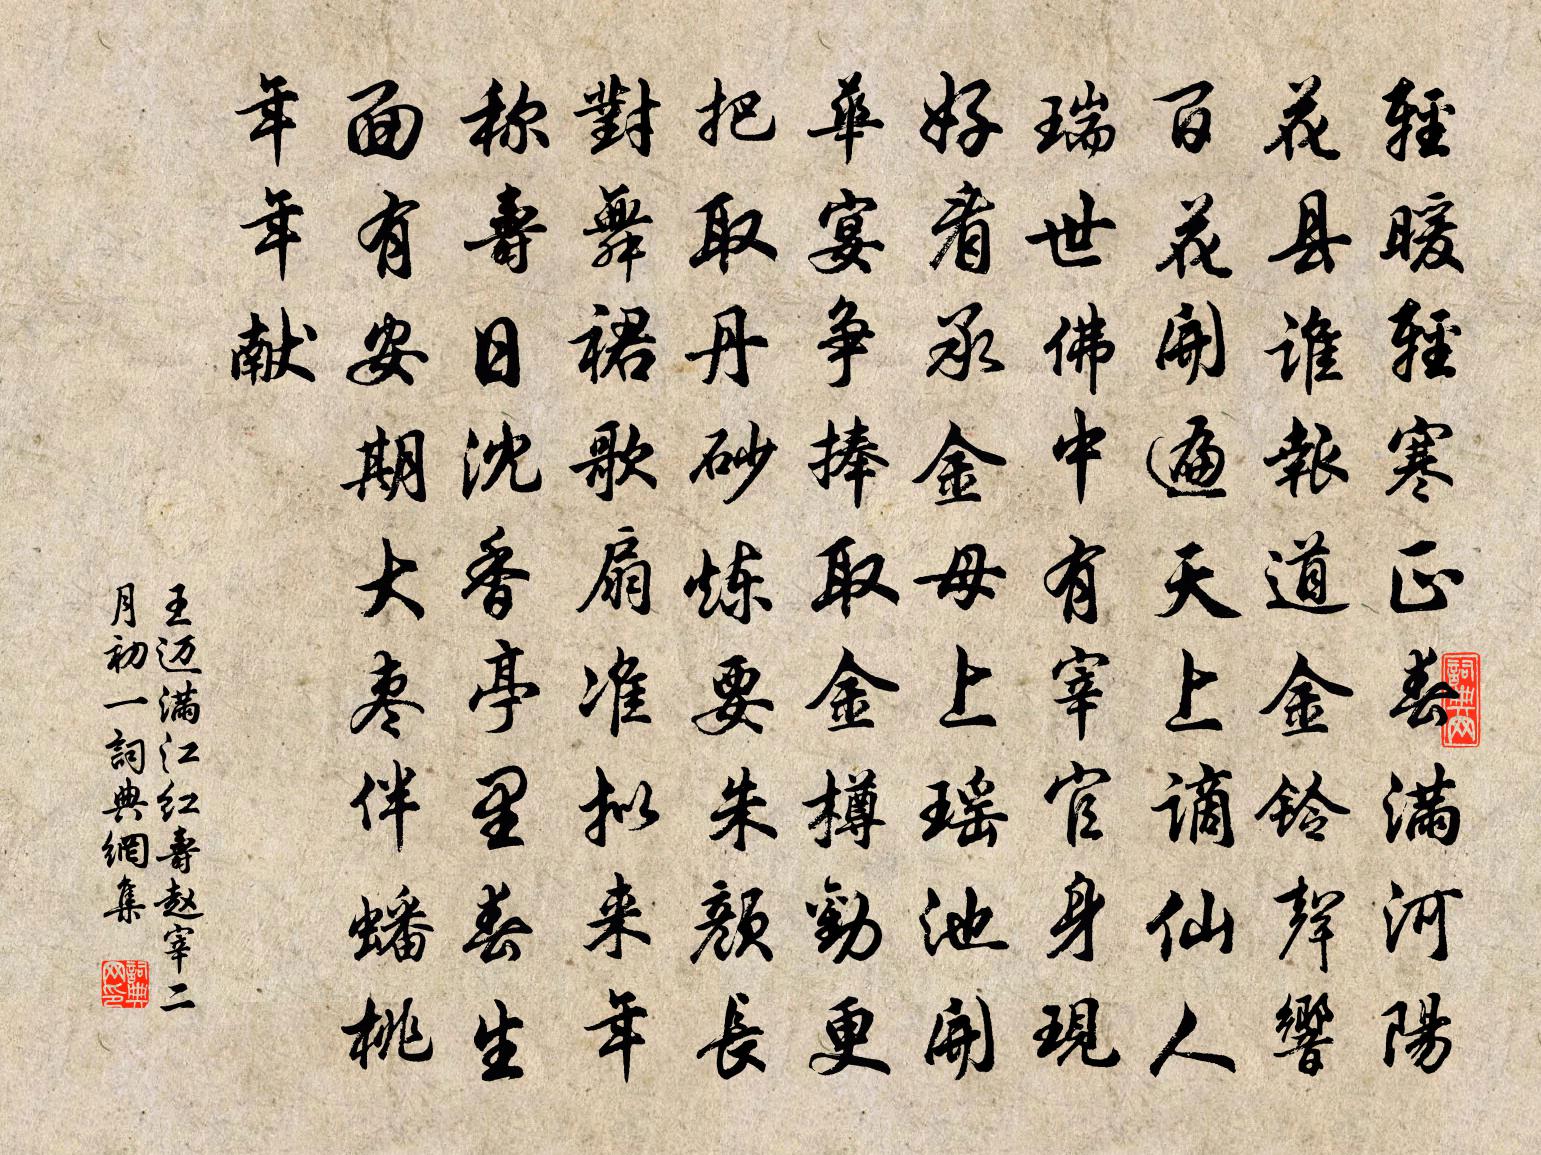 輕暖輕寒正春滿河陽
花县誰報道金鈴聲響
百花開遍天上謫仙人
瑞世佛中有宰官身現
好看承金母上瑶池開
華宴争捧取金樽勸更
把取丹砂炼要朱顔長
對舞裙歌扇准拟来年
称壽日沈香亭里春生
面有安期大枣伴蟠桃
年年献
王迈满江红壽赵宰二
月初一詞典網集
詞典网
詞典网印